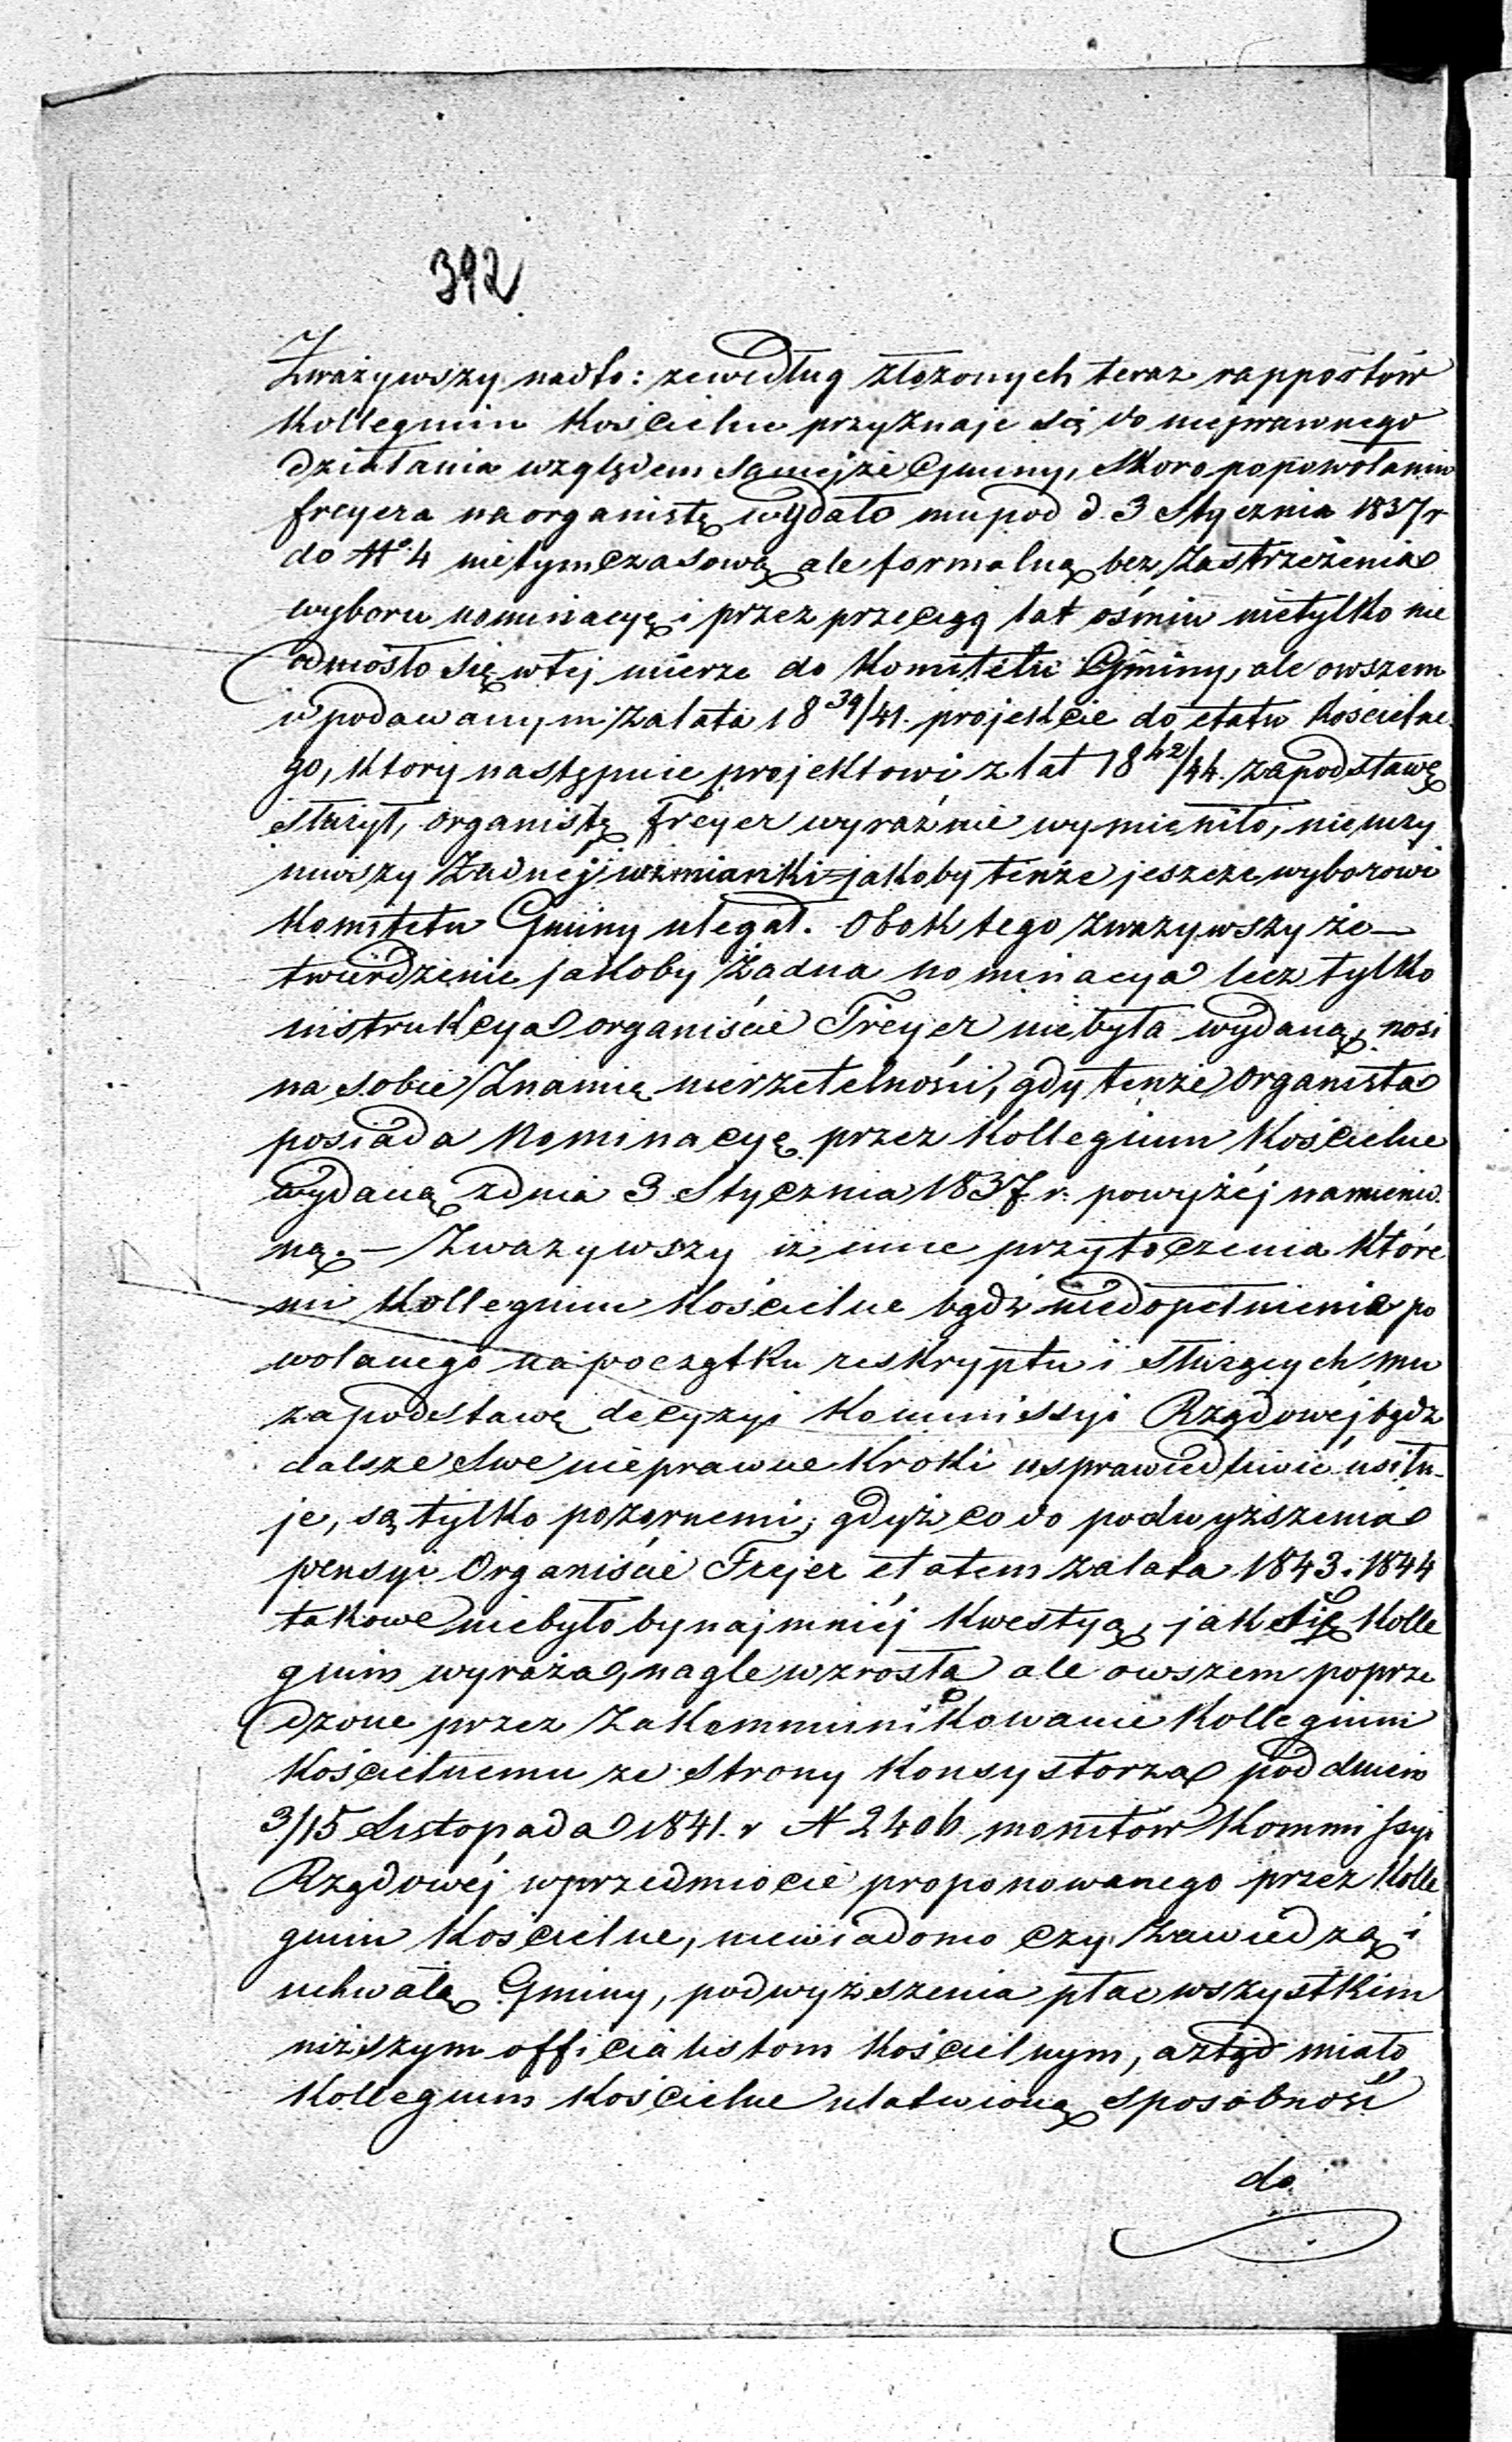 392
Zważywszy nadto: że według złożonych teraz rapportów
Kollegium Kościelne przyznaje się do nieprawnego
działania względem samejże Gminy, skoro po powołaniu
Freyera na organistę wydało mu pod d. 3 Stycznia 1837 r
do No 4 nietymczasową ale formalną bez zastrzeżenia
wyboru nominacyę i przez przeciąg lat ośmiu nietylko nie
odniosło się w tej mierze do Komitetu Gminy, ale owszem
w podawanym za lata 18 39/41. projekcie do etatu Kościelne
go, który następnie projektowi z lat 18 42/44. za podstawę
służył, organistę Freyer wyraźnie wymieniło, nieuczy
niwszy żadnéj wzmianki jakoby tenże jeszcze wyborowi
Komitetu Gminy ulegał. Obok tego zważywszy że —
twierdzenie jakoby żadna nominacya lecz tylko
instrukcya organiście Freyer nie była wydaną, nosi
na sobie znamię nierzetelności, gdy tenże organista
posiada Nominacyę przez Kollegium Kościelne
wydaną z dnia 3 Stycznia 1837. r. powyżéj namienio
ną. — Zważywszy iż inne przytoczenia które
mi Kollegium Kościelne bądź niedopełnienie po
wołanego na początku reskryptu i służących mu
za podstawę decyzyi Kommissyi Rządowéj bądz
dalsze swe nieprawne kroki usprawiedliwić usiłu-
je, są tylko pozornemi; gdyż co do podwyższenia
pensyi Organiście Frejer etatem za lata 1843. 1844
takowe niebyło bynajmniéj kwestyą, jak się Kolle
gium wyraża, nagle wzrosła ale owszem poprze
dzone przez zakommunikowanie Kollegium
Kościelnemu ze strony Konsystorza pod dniem
3/15 Listopada 1841. r N 2406 monitów Kommissyi
Rządowéj w przedmiocie proponowanego przez Kolle
gium Kościelne, niewiadomo czy za wiedzą i
uchwałą Gminy, podwyższenia płac wszystkim
niższym officialistom Kościelnym, a ztąd miało
Kollegium Kościelne ułatwioną sposobność
do